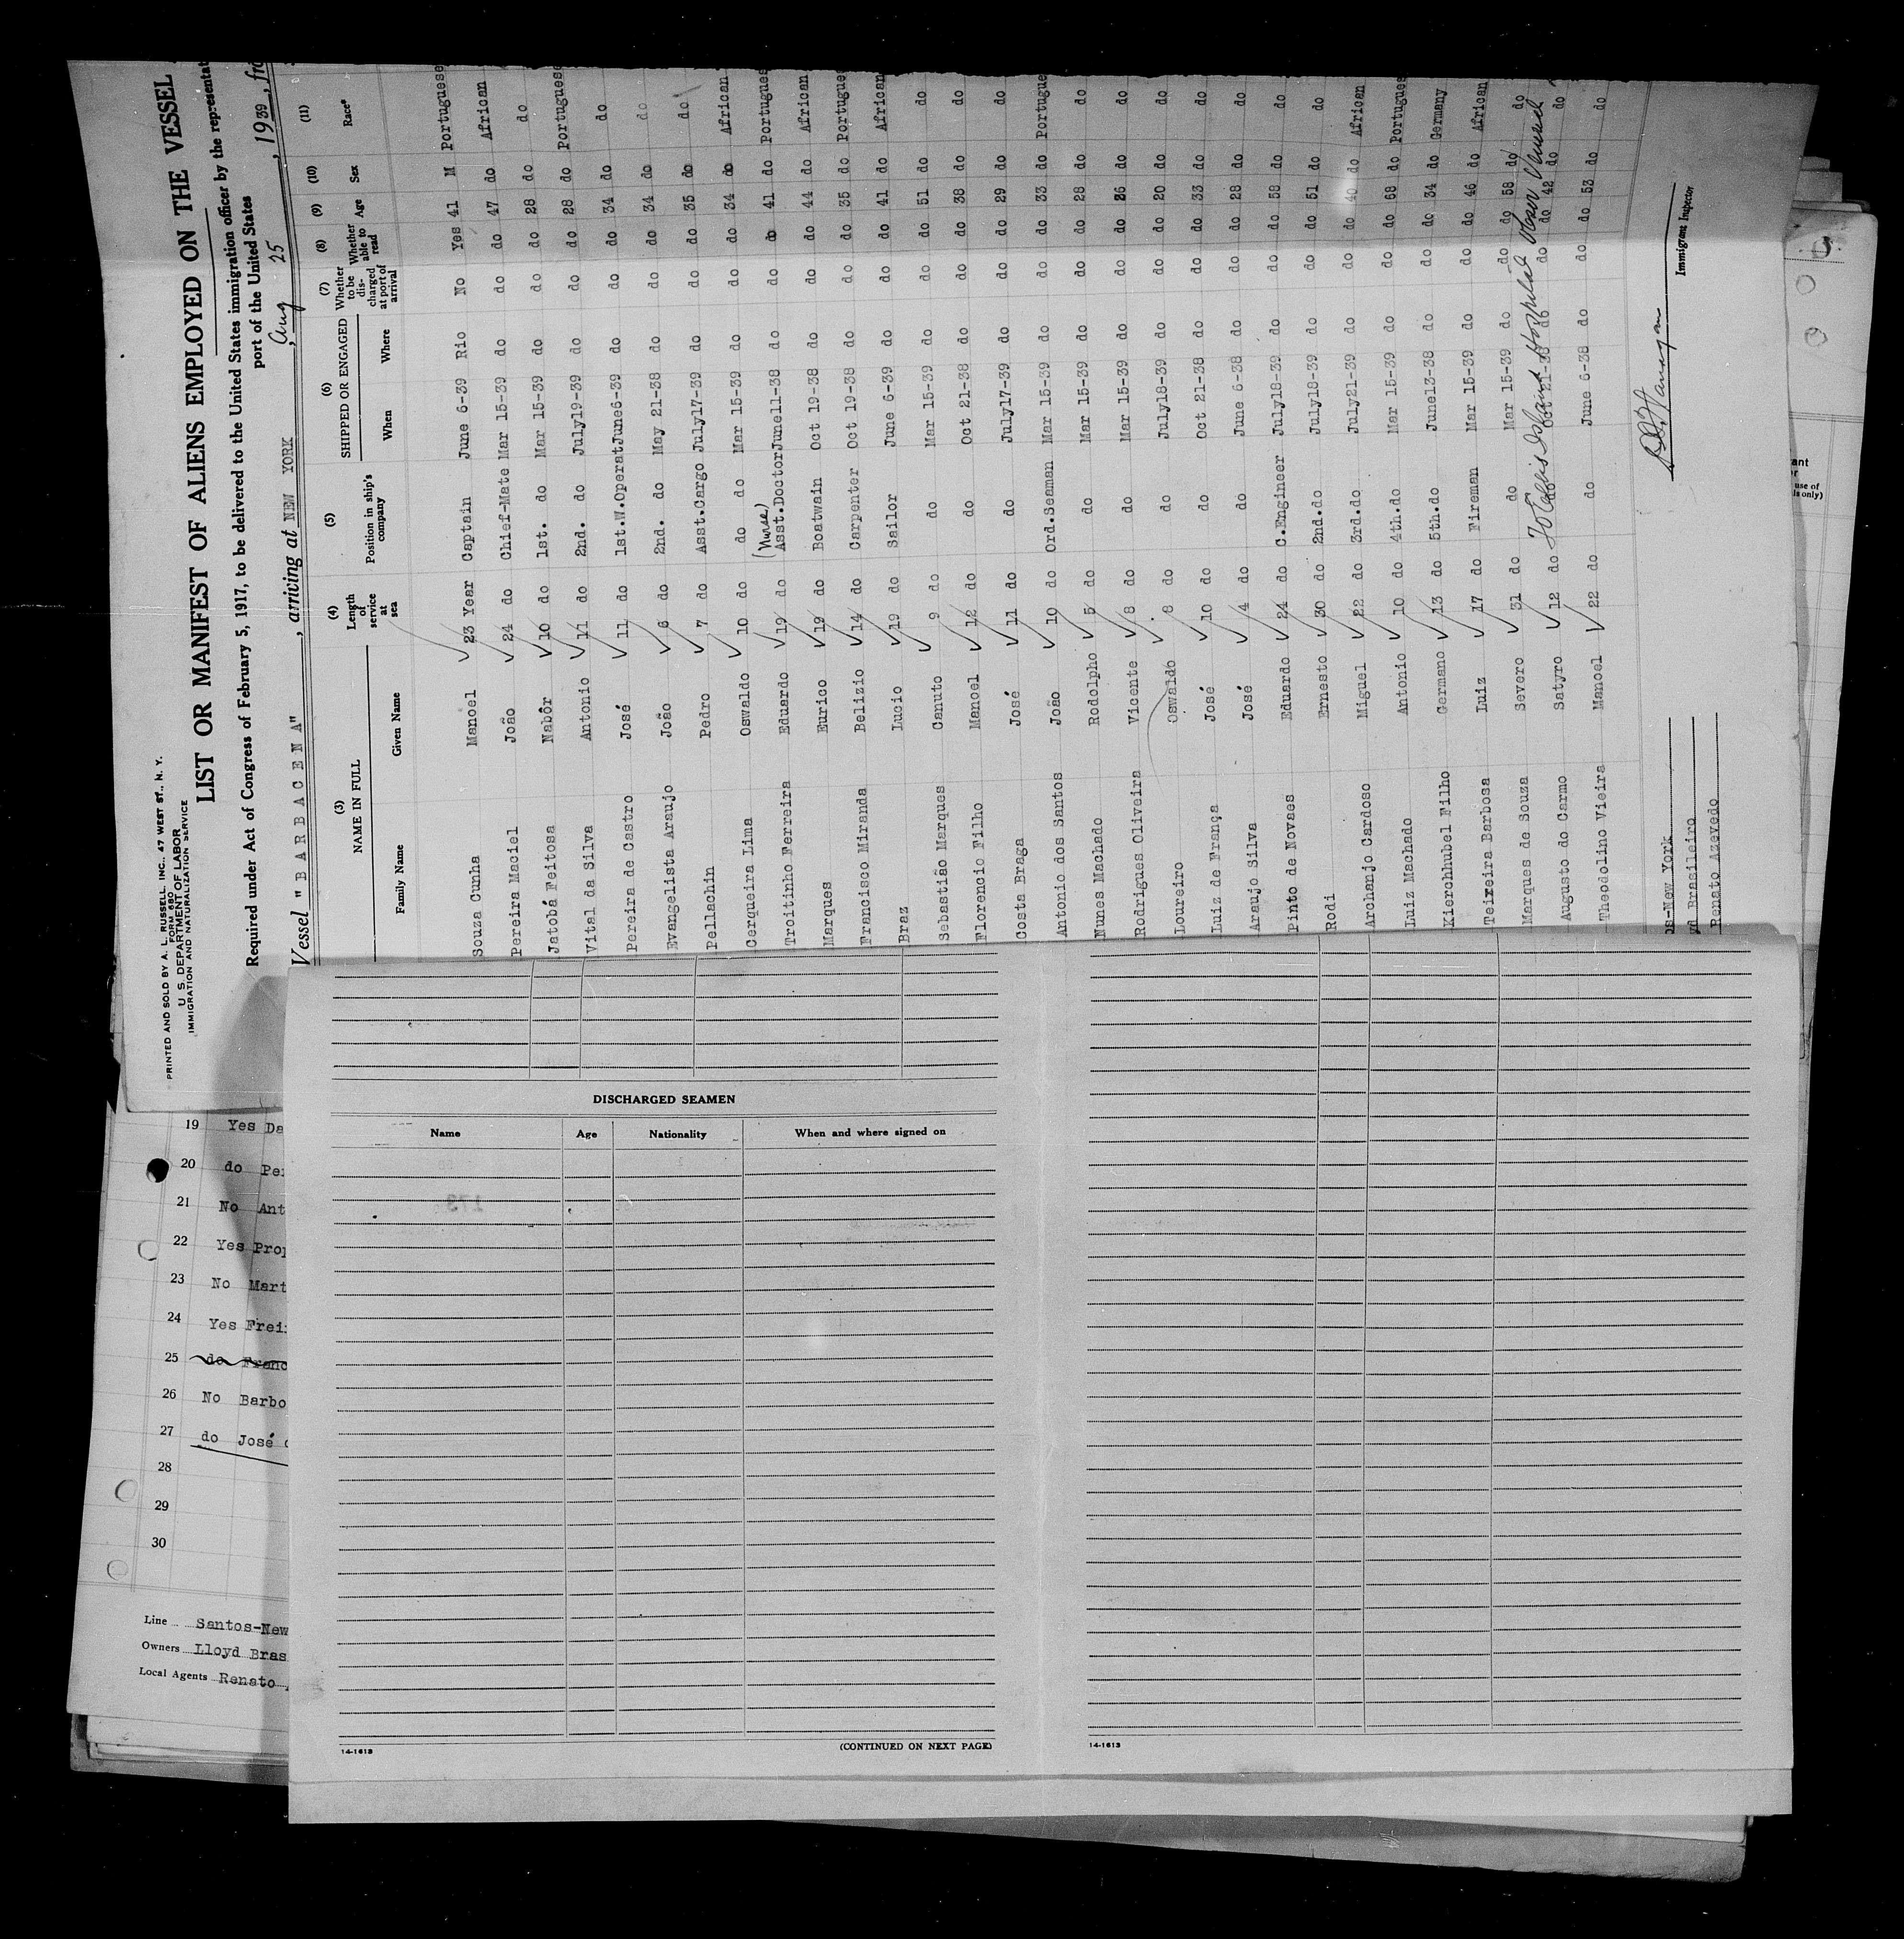 PRINTED AND SOLD BY A. L. RUSSELL, INC., 47 WEST ST., N. Y.
FORM 680
U. S. DEPARTMENT OF LABOR
IMMIGRATION AND NATURALIZATION SERVICE
LIST OR MANIFEST OF ALIENS EMPLOYED ON THE VESSEL
Required under Act of Congress of February 5, 1917, to be delivered to the United States immigration officer by the representat
port of the United States
Vessel "BARBACENA", arriving at NEW YORK, Aug 25, 1939, fro
(3) NAME IN FULL (4) Length of service at sea (5) Position in ship's company (6) SHIPPED OR ENGAGED (7) Whether to be discharged at port of arrival (8) Whether able to read (9) Age (10) Sex (11) Race*
Family Name Given Name When Where
Souza Cunha Manoel 23 Year Captain June 6-39 Rio No Yes 41 M Portuguese
Pereira Maciel João 24 do Chief-Mate Mar 15-39 do do do 47 do African
Jatobá Feitosa Nabôr 10 do 1st. do Mar 15-39 do do do 28 do do
Vital da Silva Antonio 11 do 2nd. do July19-39 do do do 28 do Portuguese
Pereira de Castro José 11 do 1st.W.OperatJune6-39 do do do 34 do do
Evangelista Araujo João 6 do 2nd. do May 21-38 do do do 34 do do
Pellachin Pedro 7 do Asst.Cargo July17-39 do do do 35 do do
Cerqueira Lima Oswaldo 10 do do do Mar 15-39 do do do 34 do African
(Nurse)
Troitinho Ferreira Eduardo 19 do Asst.DoctorJune11-38 do do do 41 do Portugues
Marques Eurico 19 do Boatwain Oct 19-38 do do do 44 do African
Francisco Miranda Belizio 14 do Carpenter Oct 19-38 do do do 35 do Portugue
Braz Lucio 19 do Sailor June 6-39 do do do 41 do African
Sebastião Marques Canuto 9 do do Mar 15-39 do do do 51 do do
Florencio Filho Manoel 12 do do Oct 21-38 do do do 38 do do
Costa Braga José 11 do do July17-39 do do do 29 do do
Antonio dos Santos João 10 do Ord.Seaman Mar 15-39 do do do 33 do Portugue
Nunes Machado Rodolpho 5 do do Mar 15-39 do do do 28 do do
Rodrigues Oliveira Vicente 8 do do Mar 15-39 do do do 26 do do
Loureiro Oswaldo 8 do do July18-39 do do do 20 do do
Luiz de França José 10 do do Oct 21-38 do do do 33 do do
Araujo Silva José 4 do do June 6-38 do do do 28 do do
Pinto de Novaes Eduardo 24 do C.Engineer July18-39 do do do 58 do do
Rodi Ernesto 30 do 2nd.do July18-39 do do do 51 do do
Archanjo Cardoso Miguel 22 do 3rd.do July21-39 do do do 40 do African
Luiz Machado Antonio 10 do 4th.do Mar 15-39 do do do 68 do Portugues
Kierchhubel Filho Germano 13 do 5th.do June13-38 do do do 34 do Germany
Teixeira Barbosa Luiz 17 do Fireman Mar 15-39 do do do 46 do African
Marques de Souza Severo 31 do do Mar 15-39 do do do 58 do do
To Ellis Island Hospital
Augusto do Carmo Satyro 12 do do Oct 21-38 do do do 42 do do
Theodolino Vieira Manoel 22 do do June 6-38 do do do 53 do do
Immigrant Inspector
os-New York
yd Brasileiro
Renato Azevedo
ant
or
use of
ls only)
DISCHARGED SEAMEN
Name Age Nationality When and where signed on
19 Yes Da
20 do Per
21 No Ant
22 Yes Prop
23 No Mart
24 Yes Frei
25 do Franc
26 No Barbo
27 do José
28
29
30
Line Santos-New
Owners Lloyd Bras
Local Agents Renato
14-1613 (CONTINUED ON NEXT PAGE)
14-1613